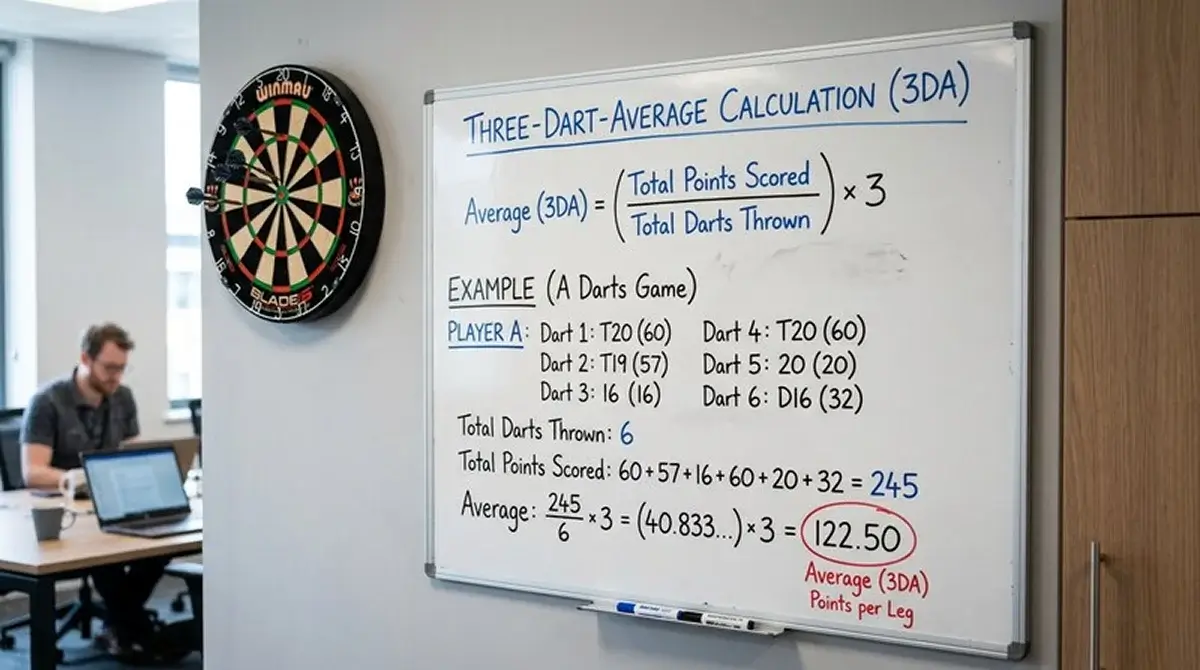 WINMAU
BLADE
THREE-DART-AVERAGE CALCULATION (3DA)
Average (3DA) = (Total Points Scored / Total Darts Thrown) × 3
EXAMPLE (A DARTS GAME)
PLAYER A: Dart 1: T20 (60) Dart 4: T20 (60)
Dart 2: T19 (57) Dart 5: 20 (20)
Dart 3: 16 (16) Dart 6: D16 (32)
Total Darts Thrown: 6
Total Points Scored: 60+57+16+60+20+32 = 245
Average: 245/6 × 3 = (40.833...) × 3 = 122.50
Average (3DA)
Points per Leg